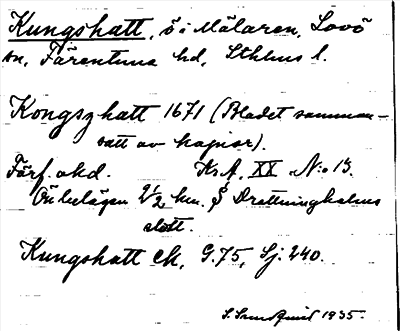 Kungshatt, ö i Mälaren, Lovö
sn, Färentuna hd, Sthlms l.
Kongszhatt 1671 (Bladet samman-
satt av kopior).
Förf. okd. Kr.A. XX No 13.
Ön belägen 2 1/2 km. S Drottningholms
slott.
Kungshatt ek, G. 75, Sj. 440.
S. Lundquist 1935.